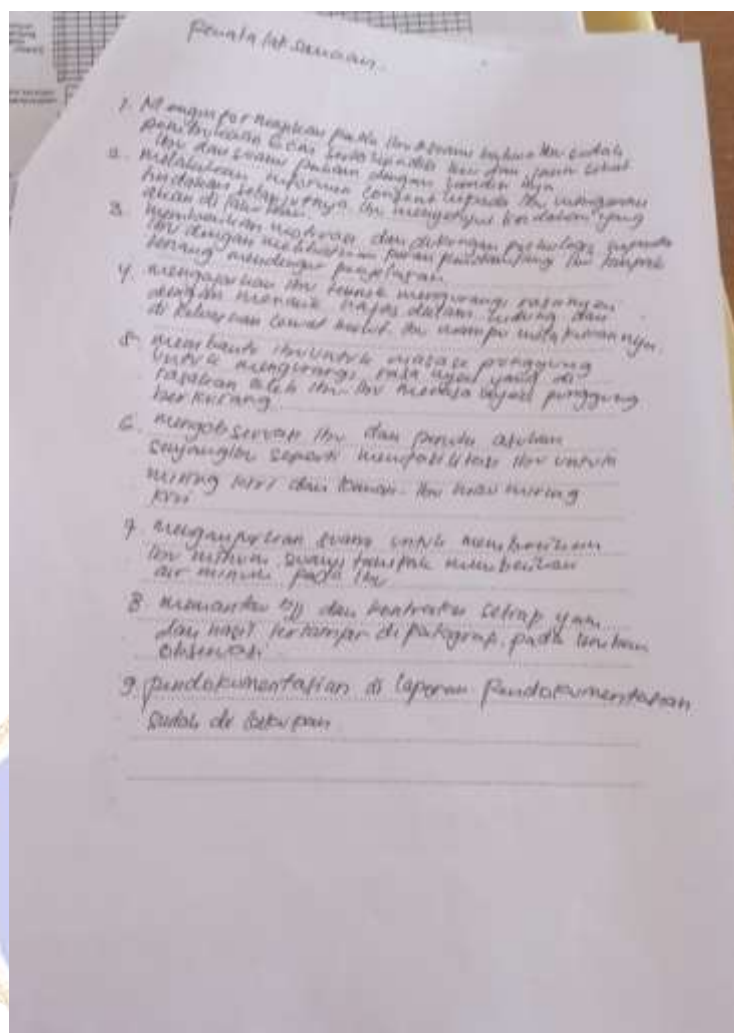 Penatalaksanaan
1. Menginformasikan pada Ibu & suami bahwa Ibu sudah
pembukaan 6 cm serta kondisi Ibu dan janin sehat
Ibu dan suami paham dengan kondisi nya
2. melakukan informed consent kepada Ibu mengenai
tindakan selanjutnya Ibu menyetujui tindakan yang
akan di lakukan
3. memberikan motivasi dan dukungan psikologi kepada
Ibu dengan melibatkan peran pendamping Ibu tampak
tenang mendengar penjelasan
4. mengajarkan Ibu teknik mengurangi rasa nyeri
dengan menarik nafas dalam hidung dan
di keluarkan lewat mulut Ibu mampu melakukannya.
5. membantu Ibu untuk masase punggung
untuk mengurangi rasa nyeri yang di
rasakan oleh Ibu Ibu merasa nyeri punggung
berkurang
6. mengobservasi Ibu dan asuhan
sayang Ibu seperti memfasilitasi Ibu untuk
miring kiri dan kanan. Ibu mau miring
kiri
7. menganjurkan suami untuk memberikan
Ibu minum suami tampak memberikan
air minum pada Ibu
8 memantau DJJ dan kontraksi setiap jam
dan hasil terlampir di patograp. pada lembar
observasi
9. pendokumentasian di laporan Pendokumentasian
sudah di lakukan